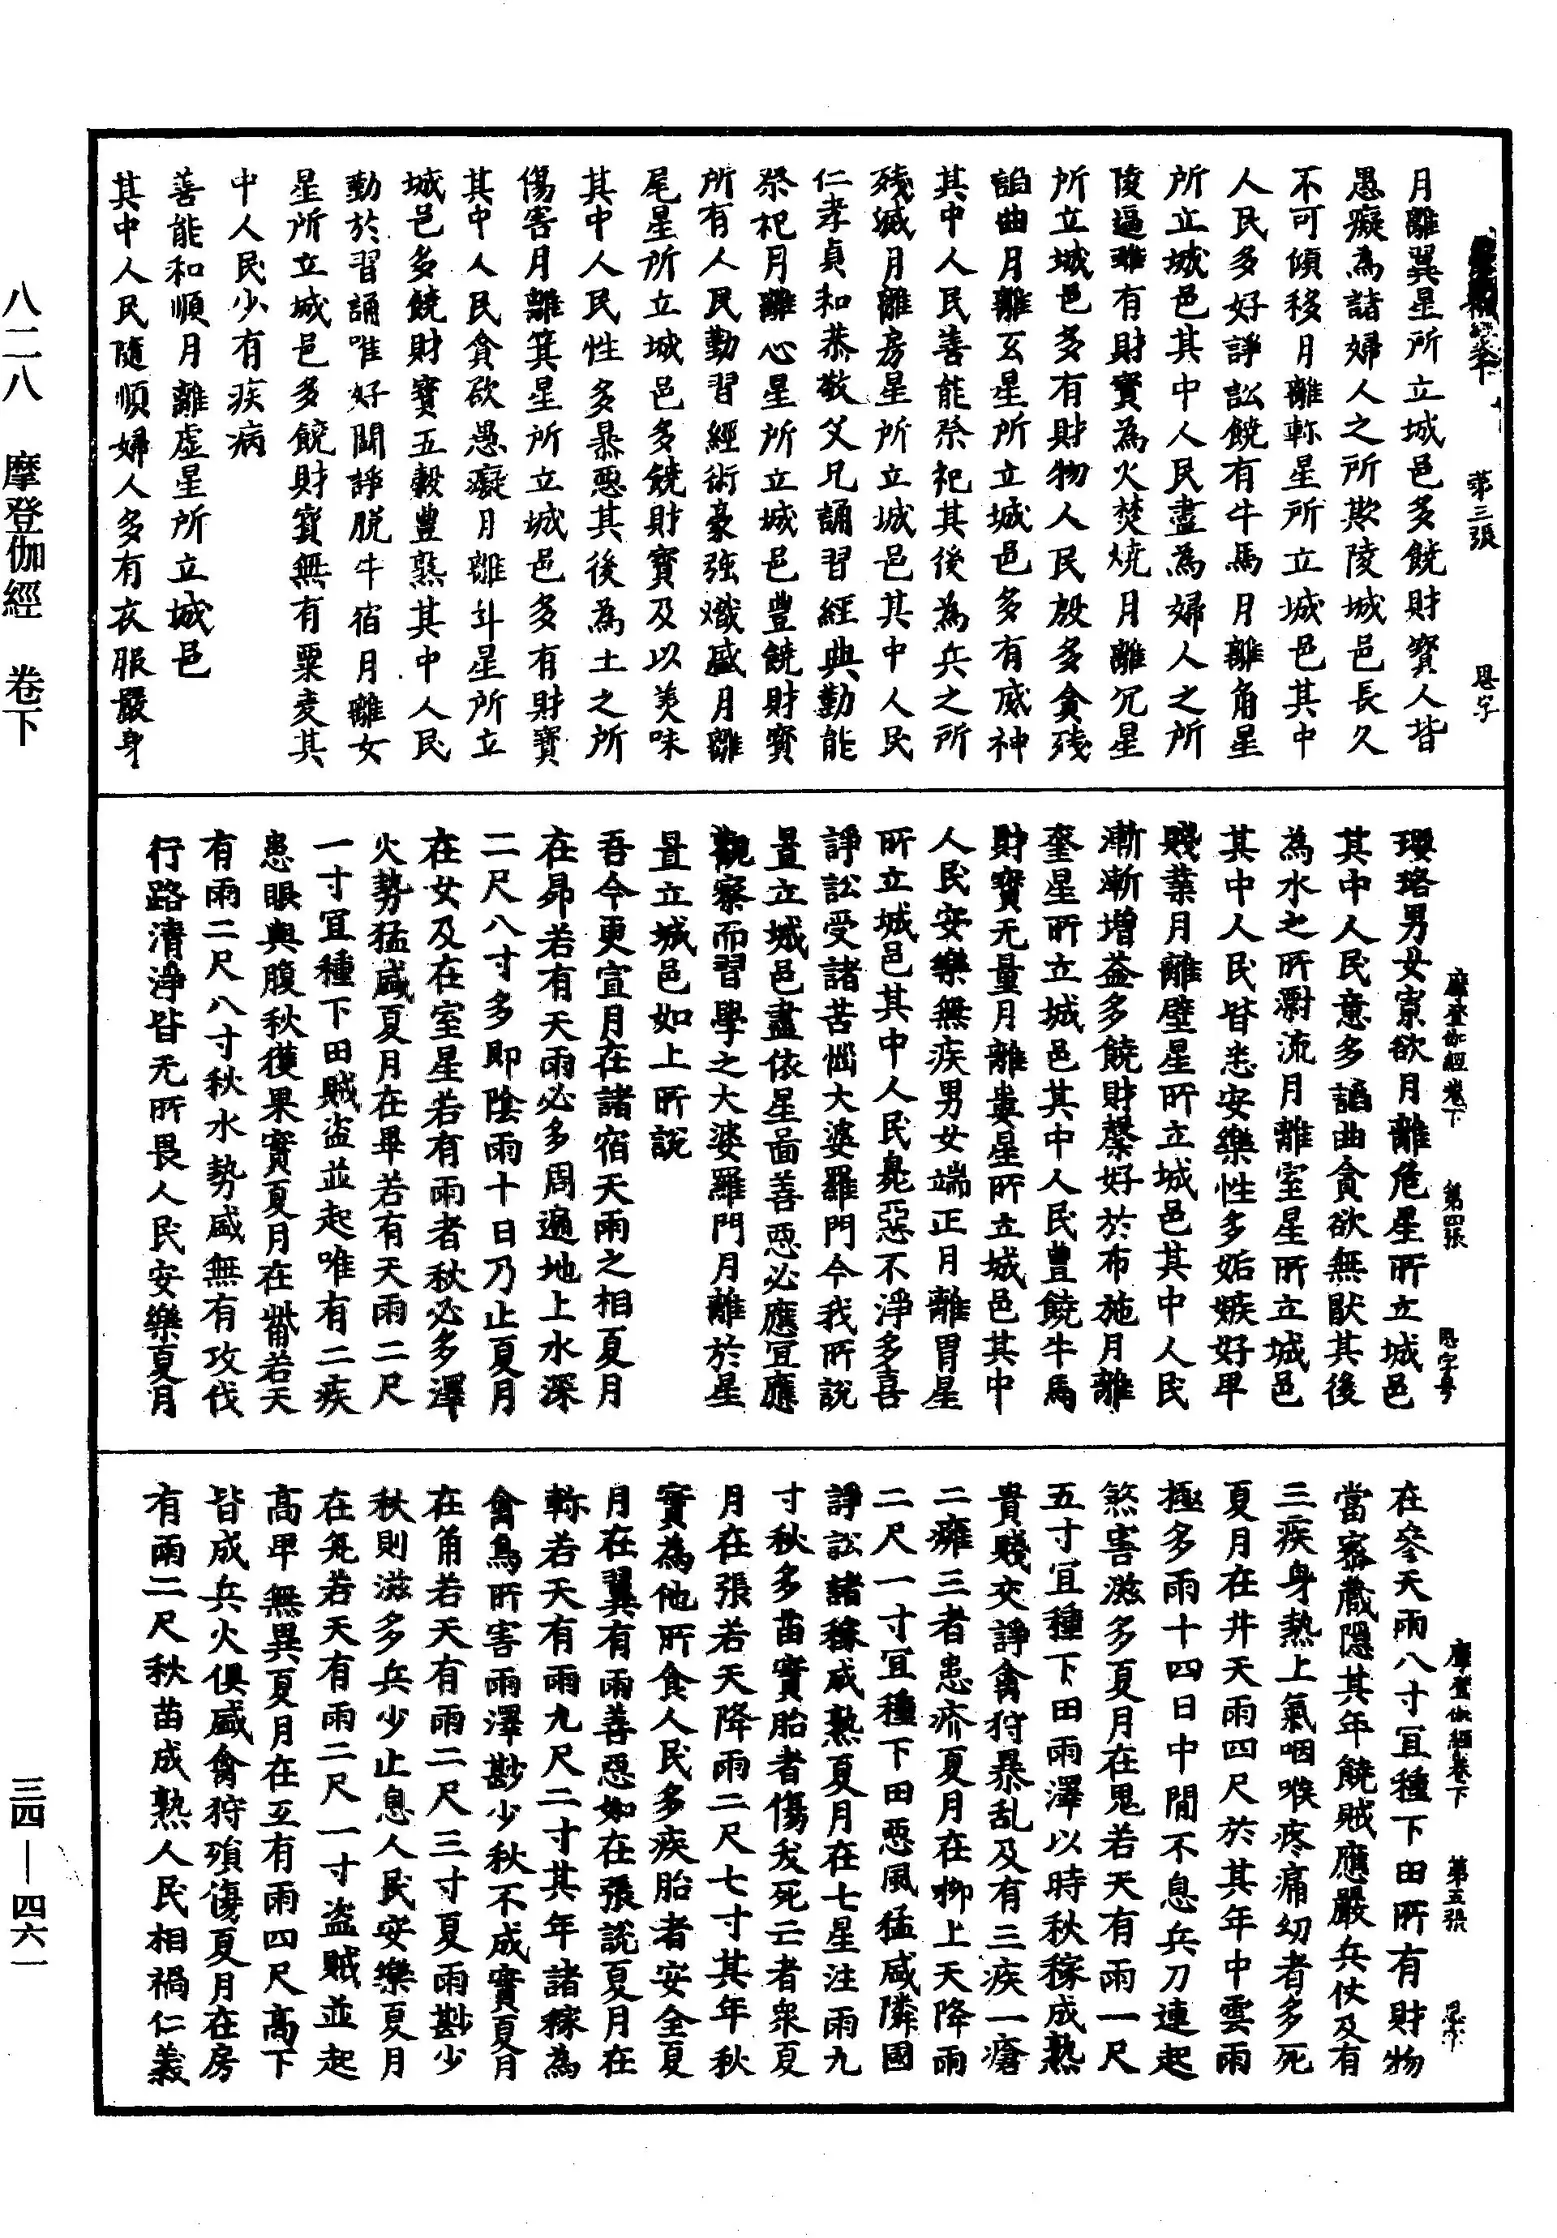 八二八 摩登伽經 卷下
三四—四六一
第三張 恩字
月離翼星所立城邑多饒財寶人皆
愚癡為諸婦人之所欺陵城邑長久
不可傾移月離軫星所立城邑其中
人民多好諍訟饒有牛馬月離角星
所立城邑其中人民盡為婦人之所
陵逼雖有財寶為火焚燒月離亢星
所立城邑多有財物人民殷多貪殘
諂曲月離氐星所立城邑多有威神
其中人民善能祭祀其後為兵之所
殘滅月離房星所立城邑其中人民
仁孝貞和恭敬父兄誦習經典勤能
祭祀月離心星所立城邑豐饒財寶
所有人民勤習經術豪強熾盛月離
尾星所立城邑多饒財寶及以美味
其中人民性多暴惡其後為土之所
傷害月離箕星所立城邑多有財寶
其中人民貪欲愚癡月離斗星所立
城邑多饒財寶五穀豐熟其中人民
勤於習誦唯好鬪諍脫牛宿月離女
星所立城邑多饒財寶無有粟麦其
中人民少有疾病
善能和順月離虛星所立城邑
其中人民隨順婦人多有衣服嚴身
摩登伽經卷下 第四張 恩字号
瓔珞男女寡欲月離危星所立城邑
其中人民意多諂曲貪欲無猒其後
為水之所漂流月離室星所立城邑
其中人民皆悉安樂性多妬嫉好早
賤業月離壁星所立城邑其中人民
漸漸增益多饒財槃好於布施月離
奎星所立城邑其中人民豐饒牛馬
財寶无量月離婁星所立城邑其中
人民安樂無疾男女端正月離胃星
所立城邑其中人民臰惡不淨多喜
諍訟受諸苦惱大婆羅門今我所說
置立城邑盡依星畐善惡必應宜應
觀察而習學之大婆羅門月離於星
置立城邑如上所說
吾今更宣月在諸宿天雨之相夏月
在昴若有天雨必多周遍地上水深
二尺八寸多即陰雨十日乃止夏月
在女及在室星若有雨者秋必多澤
火勢猛盛夏月在畢若有天雨二尺
一寸宜種下田賊盜並起唯有二疾
患眼與腹秋獲果實夏月在觜若天
有雨二尺八寸秋水勢盛無有攻伐
行路清淨皆无所畏人民安樂夏月
摩登伽經卷下 第五張 恩字
在參天雨八寸宜種下田所有財物
當密藏隱其年饒賊應嚴兵仗及有
三疾身熱上氣咽喉疼痛幼者多死
夏月在井天雨四尺於其年中雲雨
極多雨十四日中間不息兵刀連起
煞害滋多夏月在鬼若天有雨一尺
五寸宜種下田雨澤以時秋稼成熟
貴賤交諍禽狩暴乱及有三疾一瘡
二癰三者患疥夏月在柳上天降雨
二尺一寸宜種下田惡風猛盛隣國
諍訟諸稼咸熟夏月在七星注雨九
寸秋多苗實胎者傷夭死亡者衆夏
月在張若天降雨二尺七寸其年秋
實為他所食人民多疾胎者安全夏
月在翼有雨善惡如在張說夏月在
軫若天有雨九尺二寸其年諸稼為
禽鳥所害雨澤尠少秋不成實夏月
在角若天有雨二尺三寸夏雨尠少
秋則滋多兵少止息人民安樂夏月
在亢若天有雨二尺一寸盜賊並起
高早無異夏月在互有雨四尺高下
皆成兵火俱盛禽狩殞傷夏月在房
有雨二尺秋苗成熟人民相禍仁義